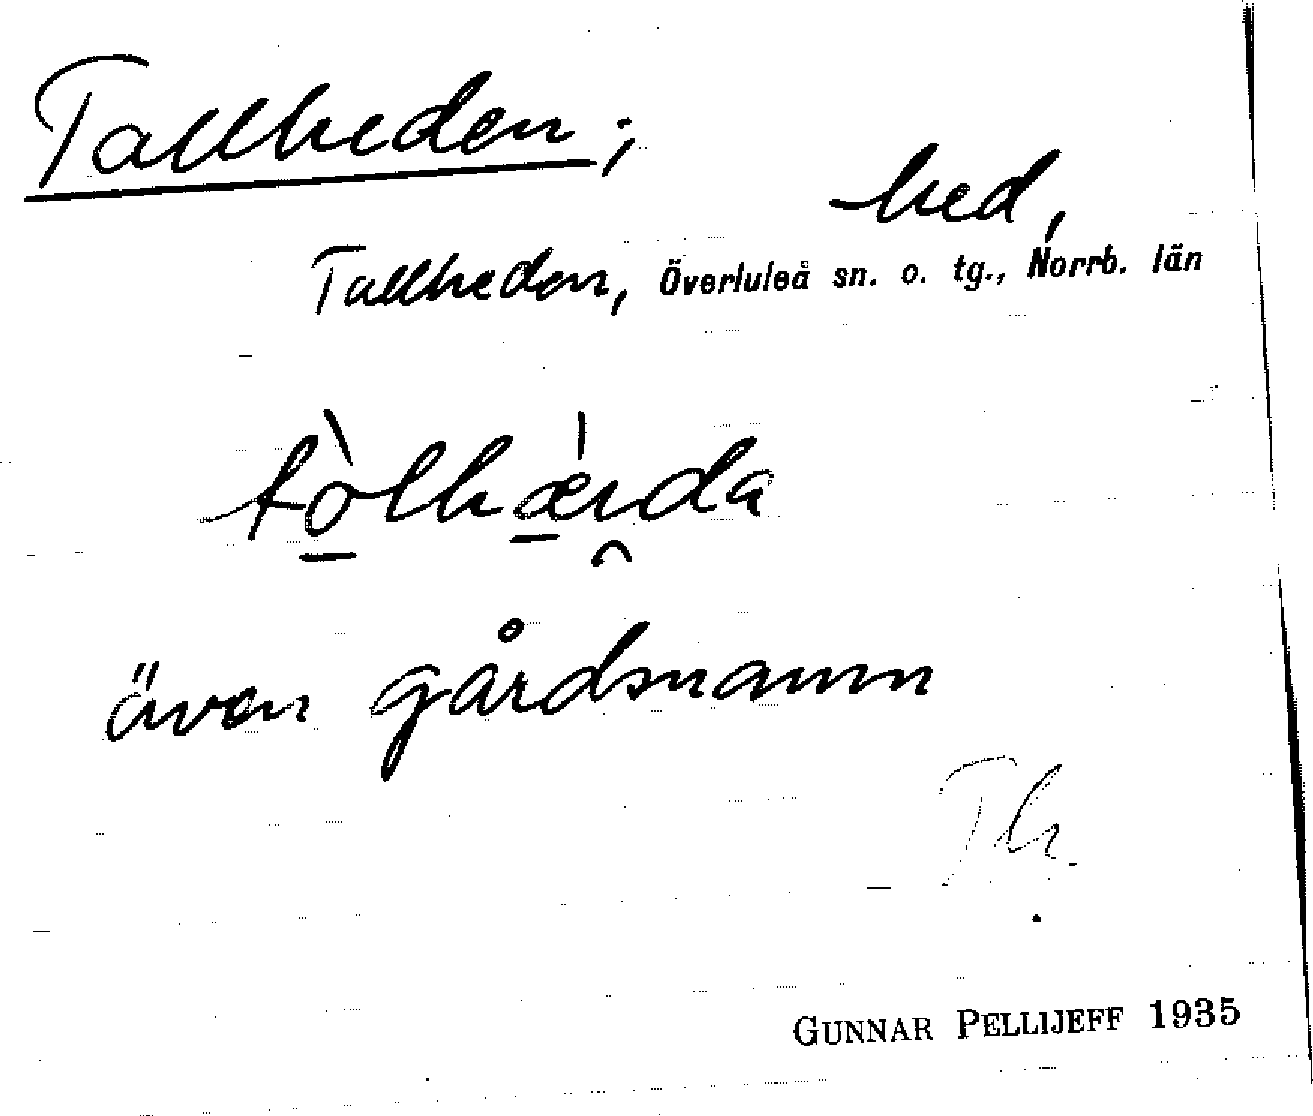 Tallheden;
hed,
Tallheden, Överluleå sn. o. tg., Norrb. län
även gårdsnamn
Th.
GUNNAR PELLIJEFF 1935